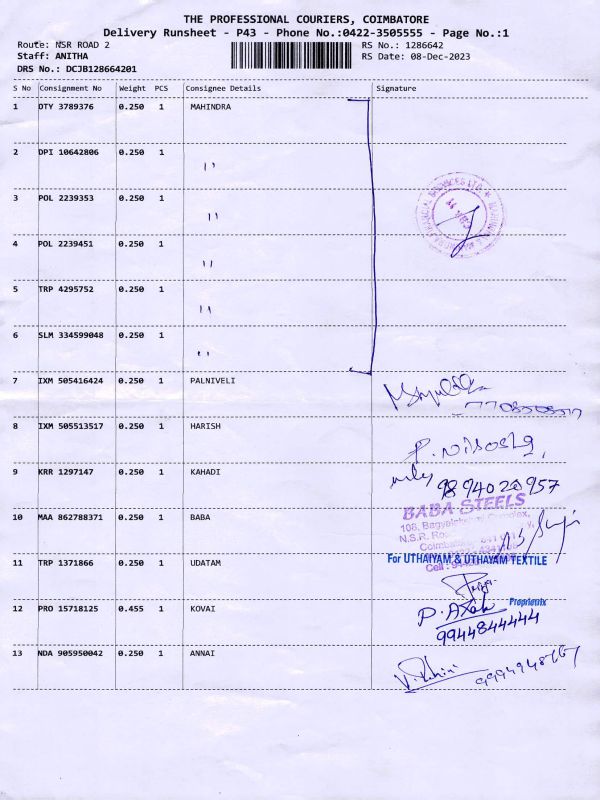 THE PROFESSIONAL COURIERS, COIMBATORE
Delivery Runsheet - P43 - Phone No.:0422-3505555 - Page No.:1
Route: NSR ROAD 2 RS No.: 1286642
Staff: ANITHA RS Date: 08-Dec-2023
DRS No.: DCJB128664201
S No Consignment No Weight PCS Consignee Details Signature
1 DTY 3789376 0.250 1 MAHINDRA
2 DPI 10642806 0.250 1 ''
3 POL 2239353 0.250 1 ''
4 POL 2239451 0.250 1 ''
5 TRP 4295752 0.250 1 ''
6 SLM 334599048 0.250 1 ''
7 IXM 505416424 0.250 1 PALNIVELI
8 IXM 505513517 0.250 1 HARISH
9 KRR 1297147 0.250 1 KAHADI
9894028957
BABA STEELS
10 MAA 862788371 0.250 1 BABA
108,
N.S.R.
For UTHAIYAM & UTHAYAM TEXTILE
11 TRP 1371866 0.250 1 UDATAM
Proprietrix
12 PRO 15718125 0.455 1 KOVAI
9944844444
13 NDA 905950042 0.250 1 ANNAI